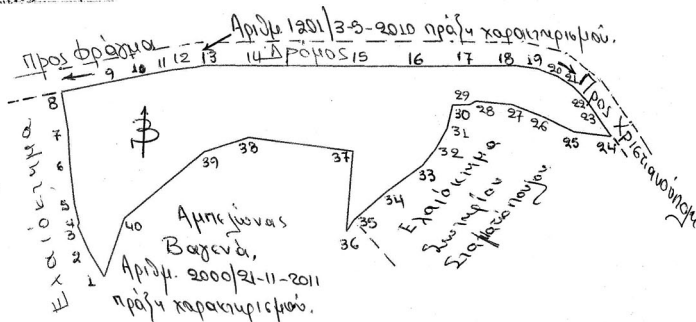 Αριθμ 1201/3-9-2010 πράξη χαρακτηρισμού.
προς φράγμα
Δρόμος
9 10 11 12 13 14 15 16 17 18 19 20 21
Προς Χριστιανούπολη
8
7
6
5
34
2
1
22
23
24
25
26
27
28
29
30
31
32
33
34
35
36
37
38
39
40
Ελαιόκτημα
Β
Αμπελώνας
Βαγενά,
Αριθμ. 2000/21-11-2011
πράξη χαρακτηρισμού.
Ελαιόκτημα
Σωτηρίου
Σταματόπουλου